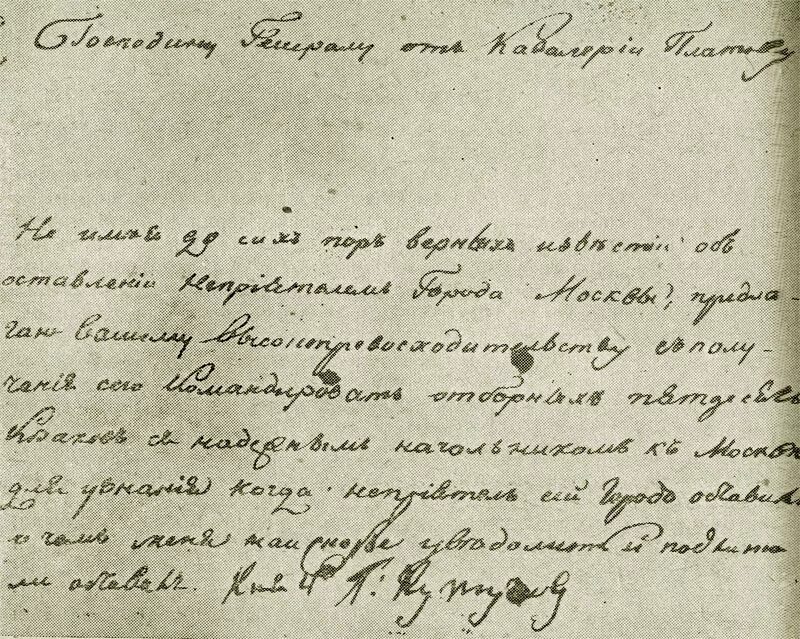 Господину Генералу отъ Кавалеріи Платову
Не имѣя до сихъ поръ верныхъ извѣстіи объ
оставленіи непріятелемъ Города Москвы, предла-
гаю вашему высокопревосходительству съ полу-
ченія сего командировать отборныхъ пятдесятъ
козаковъ съ надежнымъ начальникомъ къ Москвѣ
для узнанія когда непріятель сей Городъ оставилъ
о чемъ меня наискорѣе уведомить и подлинно
ли оставилъ. Кня Г: Кутузовъ